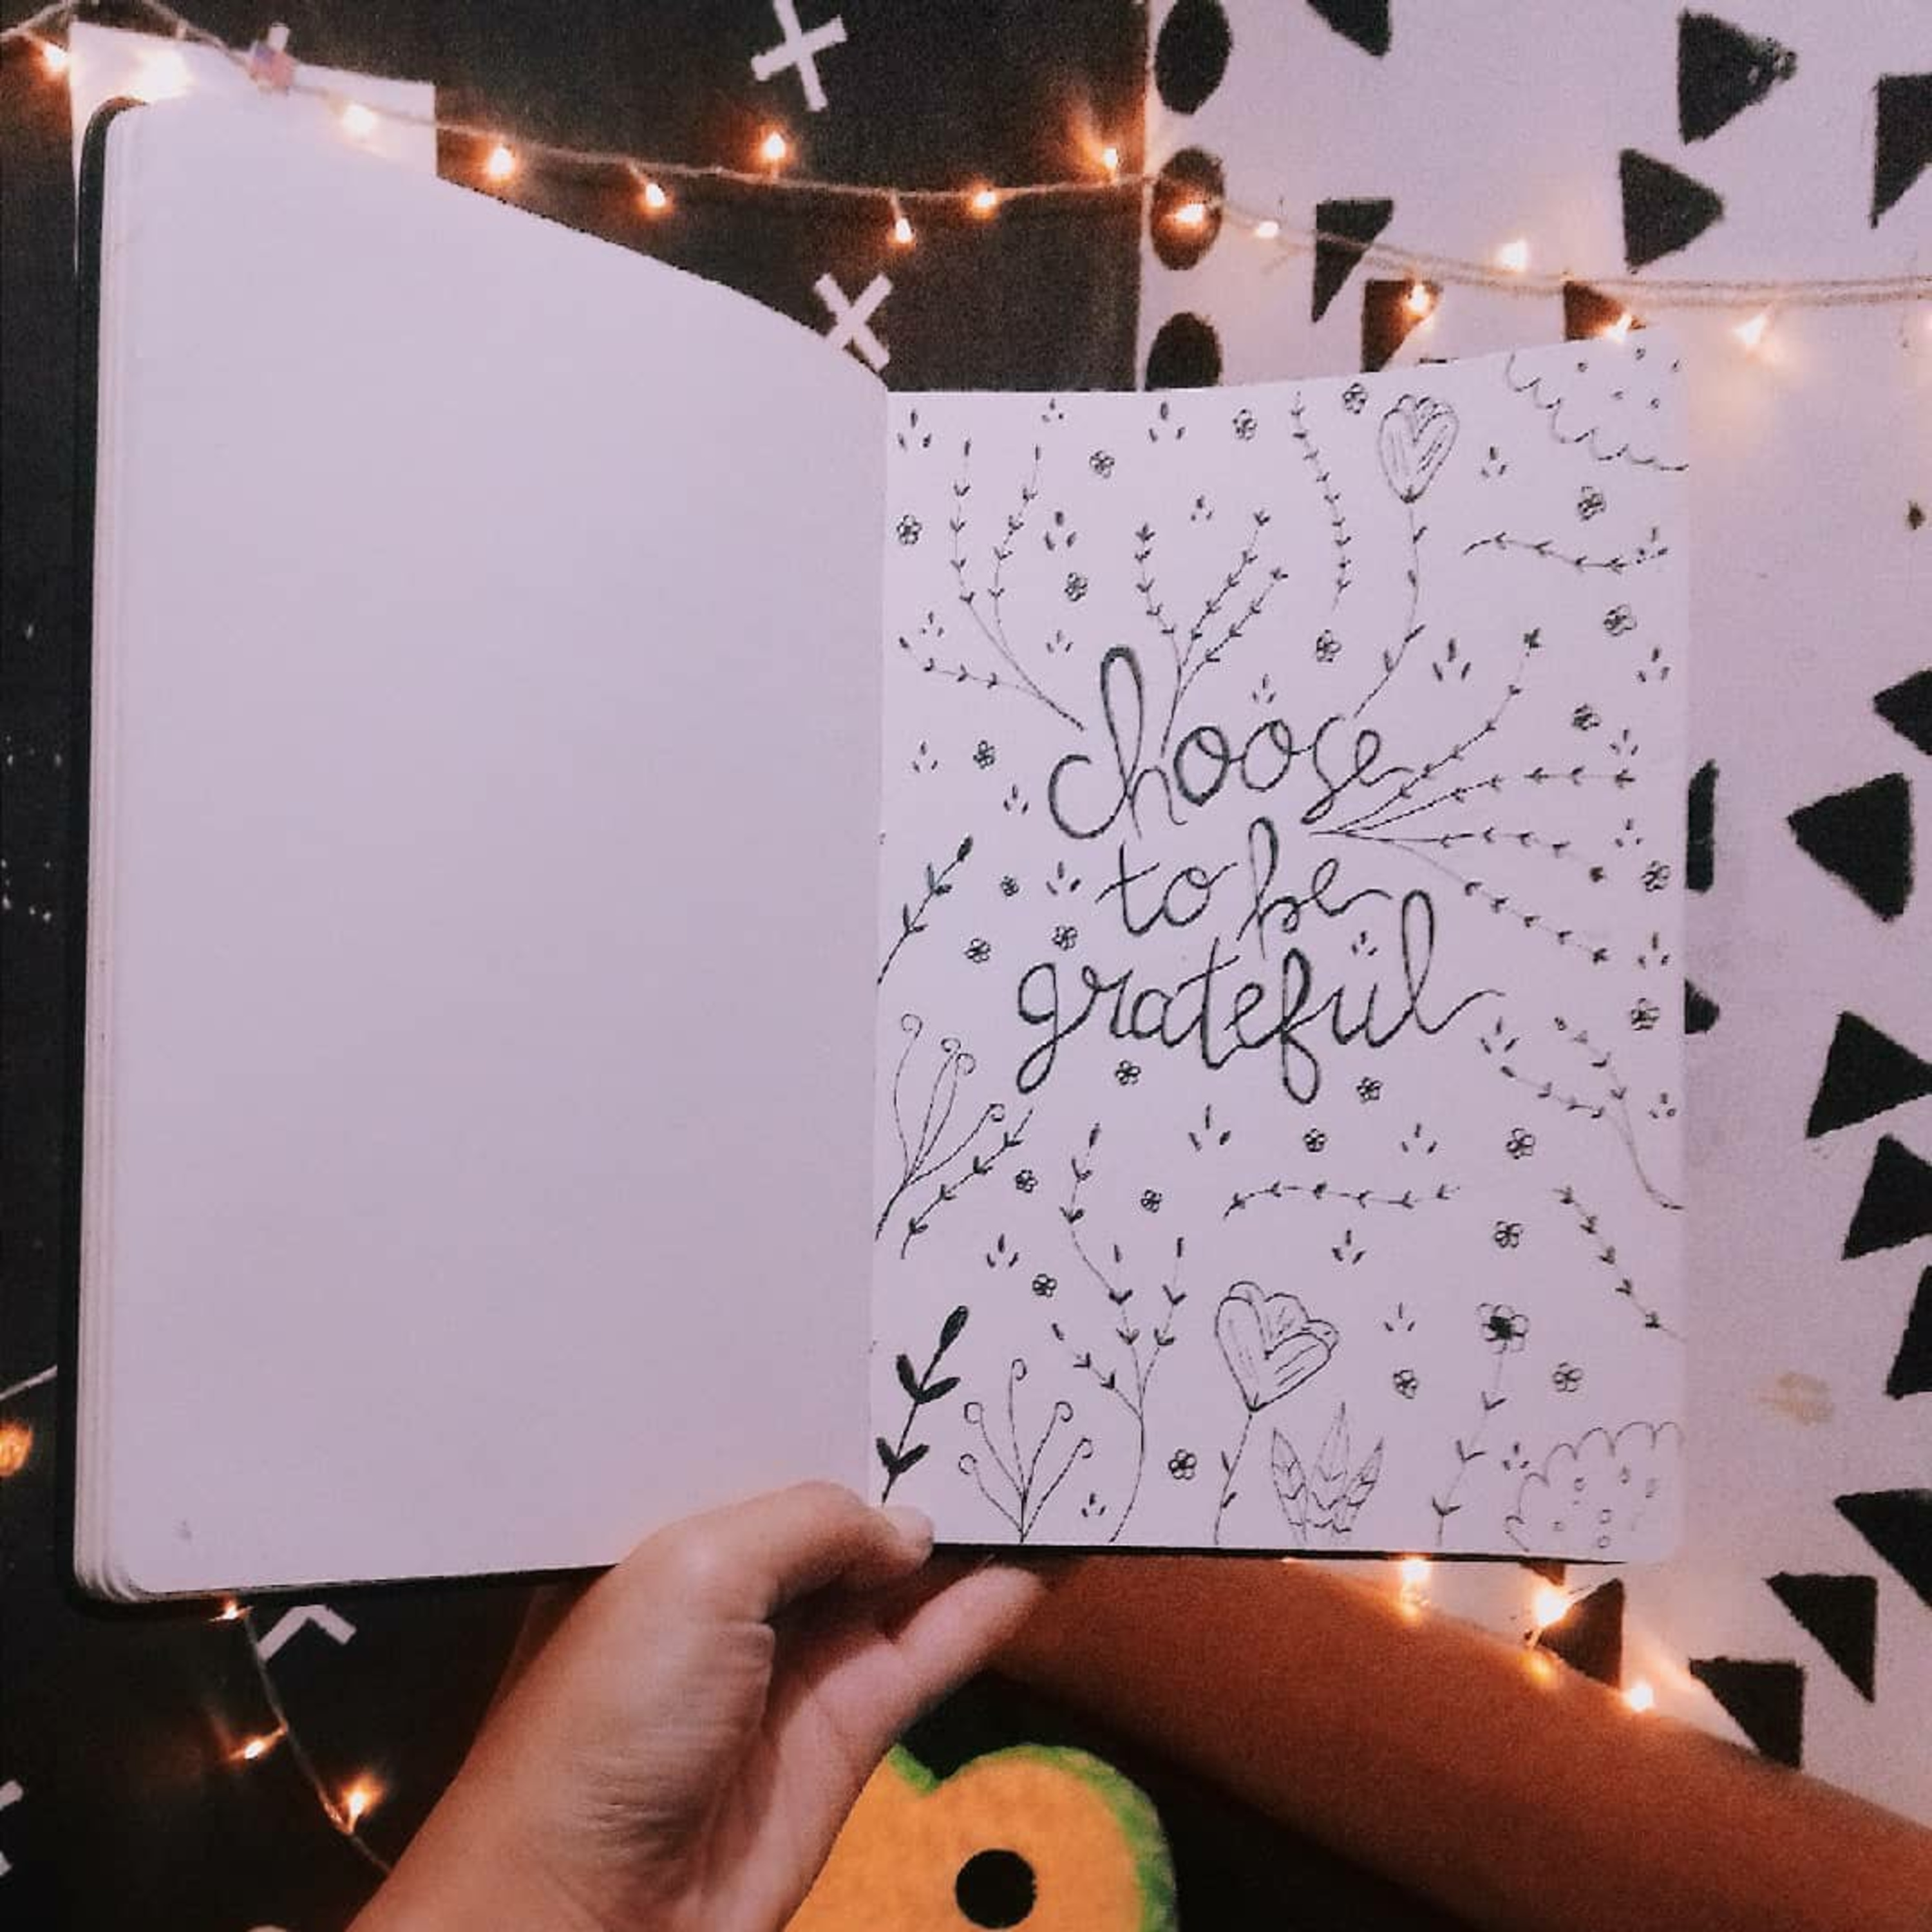 choose
to be
grateful